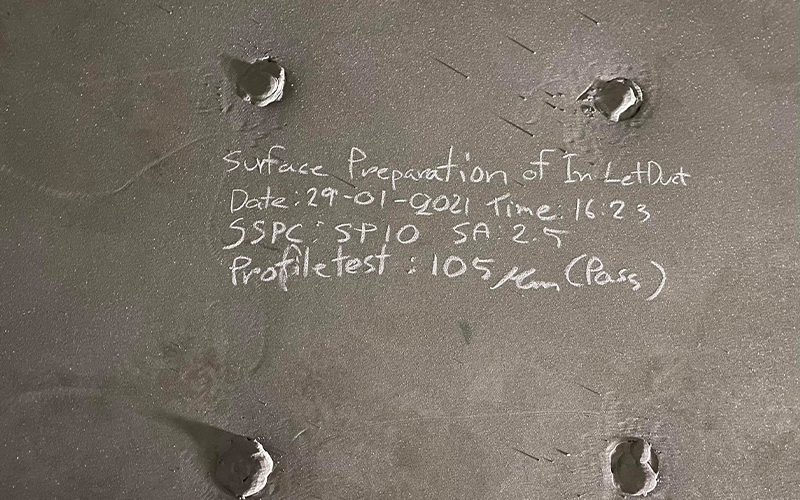 Surface Preparation of In Let Duct
Date: 29-01-2021 Time: 16:23
SSPC: SP10 SA: 2.5
Profile test : 105 μm (Pass)